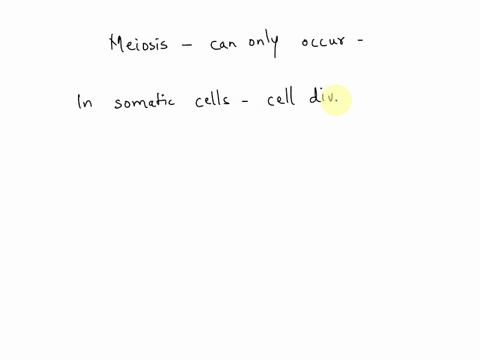 Meiosis - can only occur -
In somatic cells - cell div.